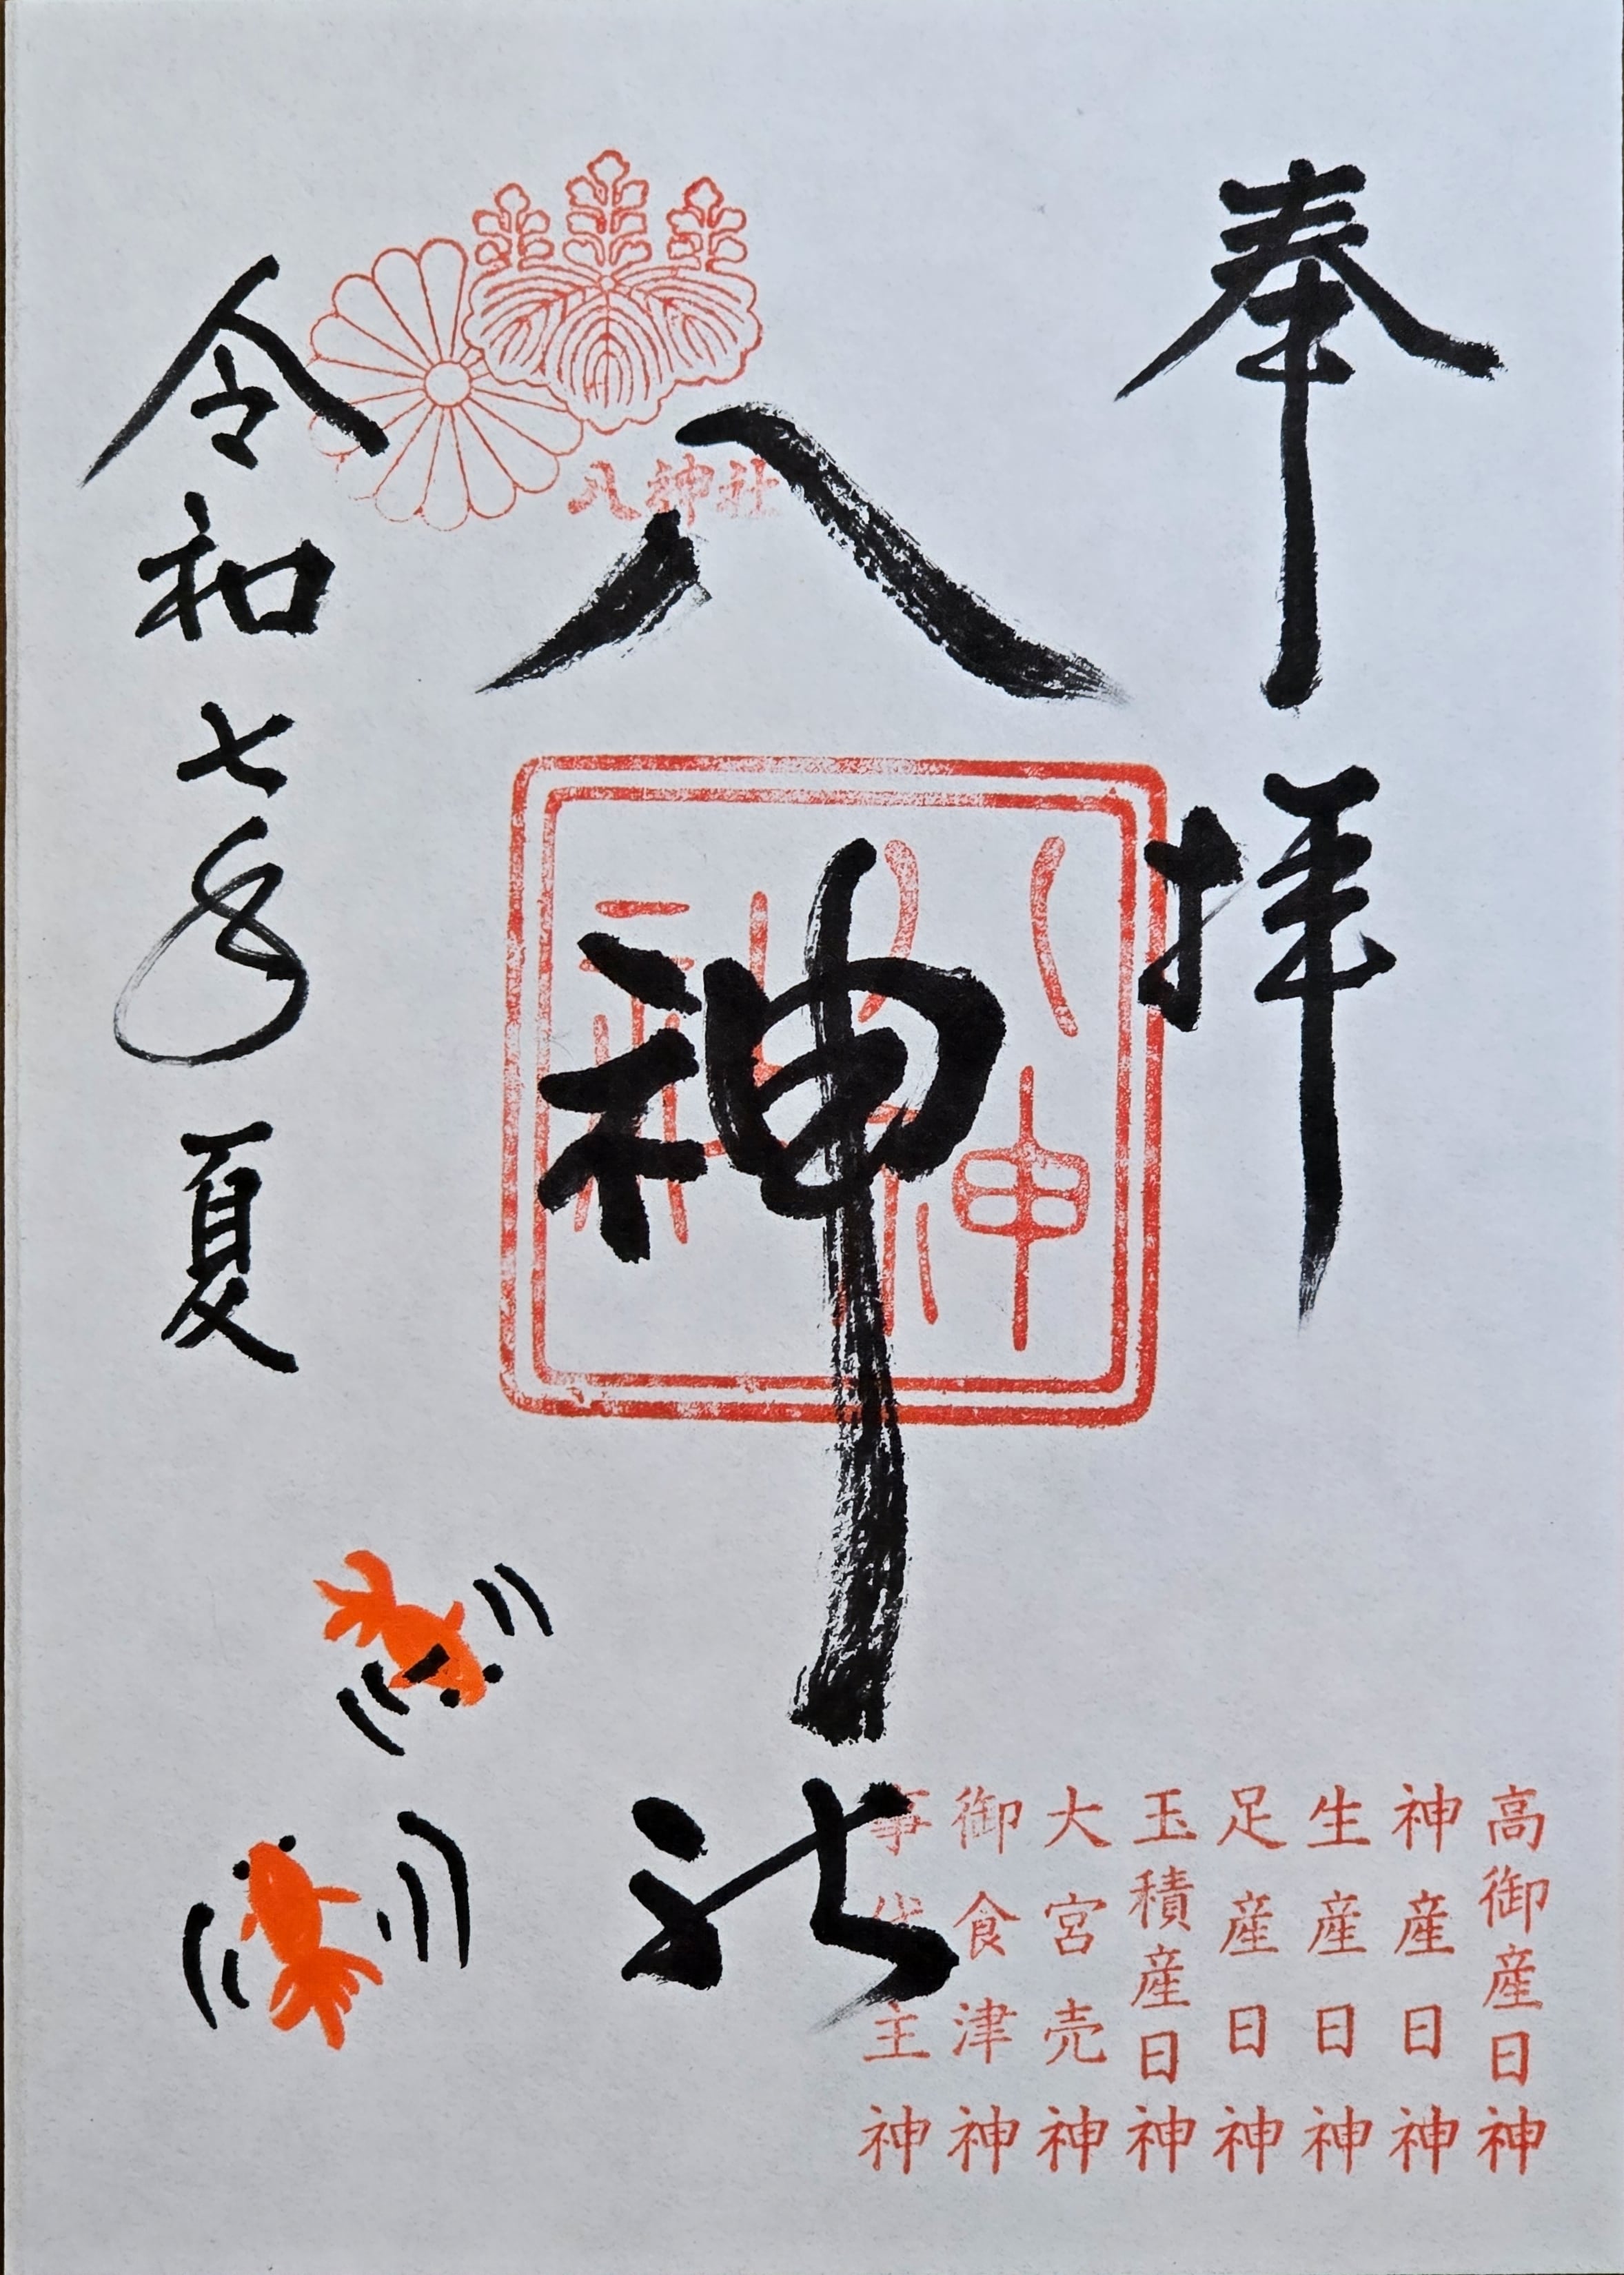 奉拝
八神社
八神社
八神社
令和七年夏
高御産日神
神産日神
生産日神
足産日神
玉積産日神
大宮売神
御食津神
事代主神